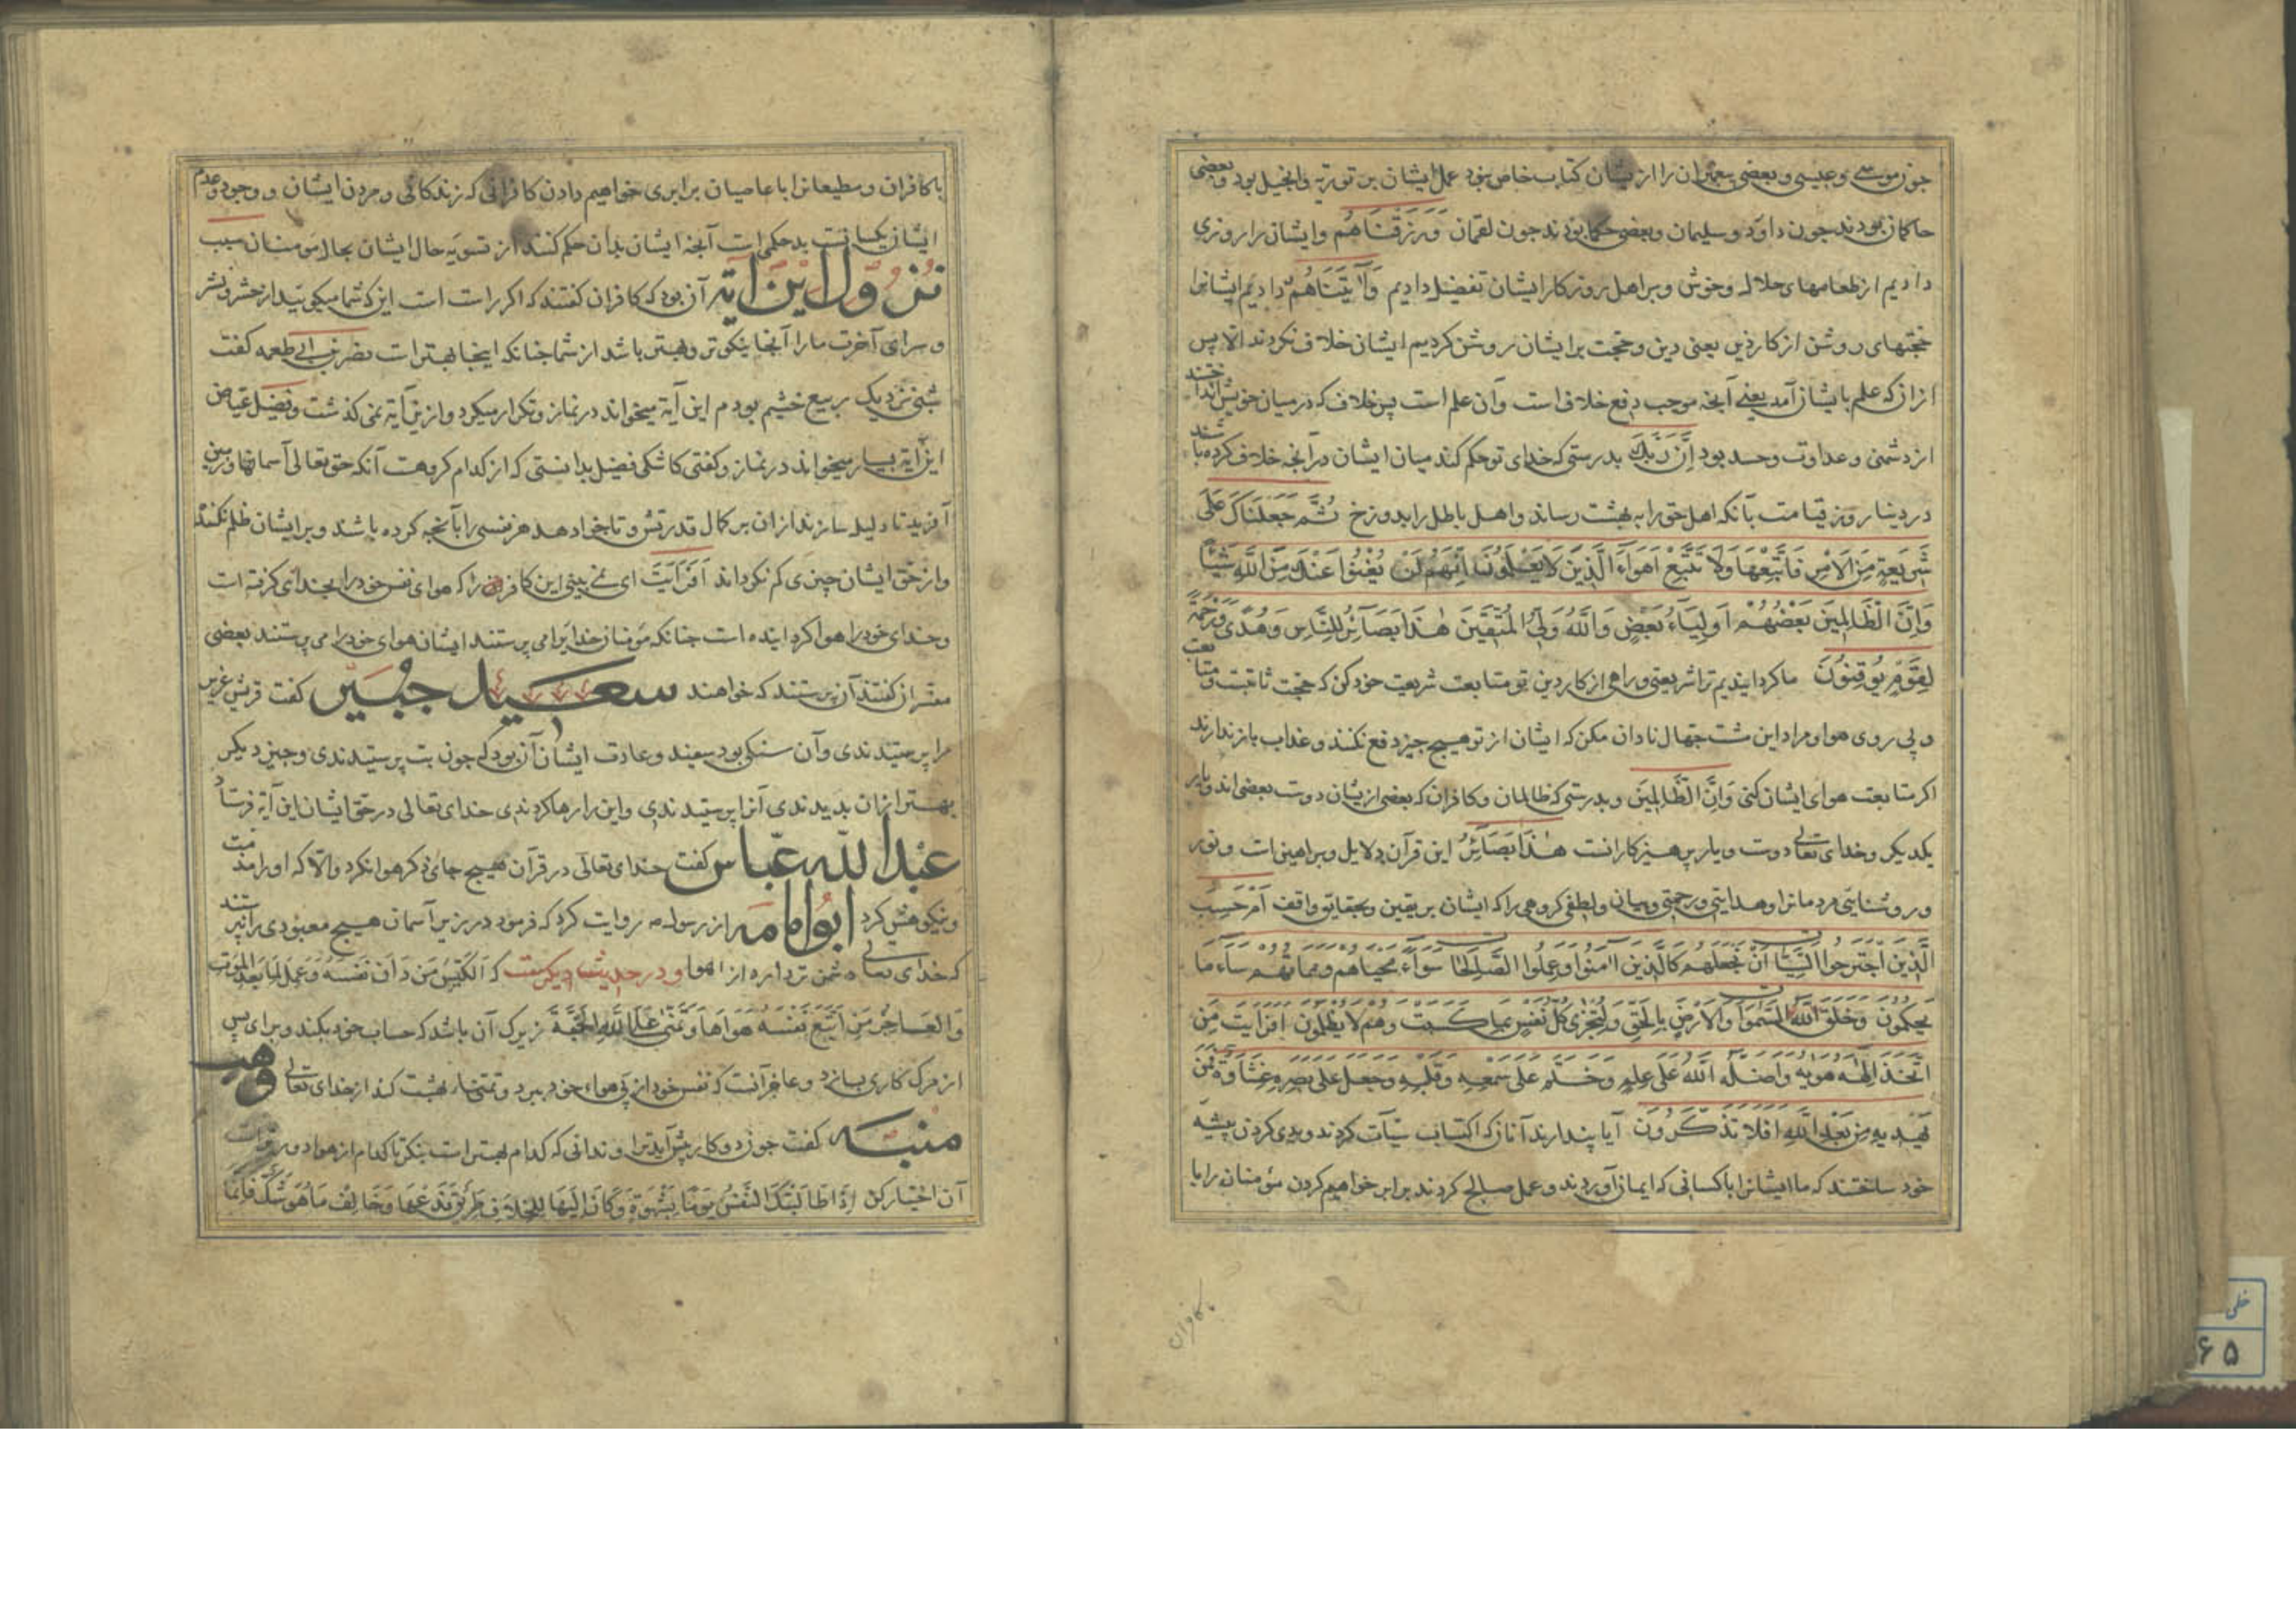 چون موسی و عیسی و بعضی پیغمبران را از یشان کتاب خاص نبود عمل ایشان بر توریة و انجیل بود و بعضی
حاکمان بودند چون داود و سلیمان و بعضی حکما بودند چون لقمان وَرَزَقْنَاهُمْ و ایشان را روزی
دادیم از طعامهای حلال و خوش و بر اهل روزکار ایشان تفضیل دادیم وَآتَیْنَاهُمْ دادیم ایشانرا
حجتهای روشن از کار دین یعنی دین و حجت بر ایشان روشن کردیم ایشان خلاف نکردند الا پس
از ان که علم بایشان آمد یعنی آنچه موجب دفع خلاف است و آن علم است پس خلاف که در میان خویش انداختند
از دشمنی و عداوت و حسد بود اِنَّ رَبَّكَ بدرستی که خدای تو حکم کند میان ایشان در آنچه خلاف کرده باشند
در دنیا روز قیامت بآنکه اهل حق را به بهشت رساند و اهل باطل را بدوزخ ثُمَّ جَعَلْنَاكَ عَلَی
شَرِیعَةٍ مِنَ الْاَمْرِ فَاتَّبِعْهَا وَلَا تَتَّبِعْ اَهْوَاءَ الَّذِینَ لَا یَعْلَمُونَ اِنَّهُمْ لَنْ یُغْنُوا عَنْكَ مِنَ اللَّهِ شَیْئًا
وَاِنَّ الظَّالِمِینَ بَعْضُهُمْ اَوْلِیَاءُ بَعْضٍ وَاللَّهُ وَلِیُّ الْمُتَّقِینَ هٰذَا بَصَائِرُ لِلنَّاسِ وَهُدًی وَرَحْمَةٌ
لِقَوْمٍ یُوقِنُونَ ما کردانیدیم ترا شریعتی و راهی از کار دین تو متابعت شریعت خود کن که حجت ثابتست و متابعت
و پی روی هوا و مراد این مشت جهال نادان مکن که ایشان از تو هیچ چیز دفع نکنند و عذاب باز ندارند
اکر متابعت هوای ایشان کنی وَاِنَّ الظَّالِمِینَ و بدرستی که ظالمان و کافران که بعضی از یشان دوست بعضی اند و یار
یکدیکر و خدای تعالی دوست و یار پرهیزکارانست هٰذَا بَصَائِرُ این قرآن دلایل و براهین است و نور
و روشنایی مردمانرا و هدایتی و رحمتی و بیان و لطفی کروهی را که ایشان بر یقین و بحقایق واقف اَمْ حَسِبَ
الَّذِینَ اجْتَرَحُوا السَّیِّئَاتِ اَنْ نَجْعَلَهُمْ کَالَّذِینَ آمَنُوا وَعَمِلُوا الصَّالِحَاتِ سَوَاءً مَحْیَاهُمْ وَمَمَاتُهُمْ سَاءَ مَا
یَحْکُمُونَ وَخَلَقَ اللَّهُ السَّمٰوَاتِ وَالْاَرْضَ بِالْحَقِّ وَلِتُجْزٰی کُلُّ نَفْسٍ بِمَا کَسَبَتْ وَهُمْ لَا یُظْلَمُونَ اَفَرَاَیْتَ مَنِ
اتَّخَذَ اِلٰهَهُ هَوٰیهُ وَاَضَلَّهُ اللَّهُ عَلٰی عِلْمٍ وَخَتَمَ عَلٰی سَمْعِهِ وَقَلْبِهِ وَجَعَلَ عَلٰی بَصَرِهِ غِشَاوَةً فَمَنْ
یَهْدِیهِ مِنْ بَعْدِ اللَّهِ اَفَلَا تَذَکَّرُونَ آیا پندارند آنان که اکتساب سیآت کردند و بدی کردن پیشه
خود ساختند که ما ایشانرا با کسانی که ایمان آوردند و عمل صالح کردند برابر خواهیم کردن مؤمنان را با
با کافران
با کافران و مطیعانرا با عاصیان برابری خواهیم دادن کافرانی که زندکانی و مردن ایشان و وجود و عدم
ایشان یکسانست بد حکمی است آنچه ایشان بدان حکم کنند از تسویه حال ایشان بحال مومنان سبب
نُزُولِ این آیَة آن بود که کافران کفتند که اکر راست است این که شما میکویید از حشر و نشر
و سرای آخرت ما را آنجا نیکوتر و بهتر باشد از شما چنانکه اینجا بهتر است کفت
شبی نزدیک ربیع خثیم بودم این آیة میخواند در نماز و تکرار میکرد و ازین آیة نمی کذشت و فضیل عیاض
این آیة بسیار میخواند در نماز و کفتی کاشکی فضیل بدانستی که از کدام کروهست آنکه حق تعالی آسمانها و زمین
آفریدتا دلیل سازند از ان بر کمال قدرتش و تا جزا دهد هر نفسی را بآنچه کرده باشد و بر ایشان ظلم نکنند
و از حق ایشان چیزی کم نکرداند اَفَرَاَیْتَ ای نمی بینی این کافران را که هوای نفس خود را بخدای کرفته است
و خدای خود را هوا کردانیده است چنانکه مومنان خدایرا می پرستند ایشان هوای خود را می پرستند بعضی
مفسران کفتند آن پرستند که خواهند سعید جبیر کفت قریش عزی
را پرستیدندی و آن سنکی بود سفید و عادت ایشان آن بود که چون بت پرستیدندی و چیز دیکر
بهتر از ان بدیدندی آنرا پرستیدندی و این را رها کردندی خدای تعالی در حق ایشان این آیة فرستاد
عبدالله عباس کفت خدای تعالی در قرآن هیچ جای ذکر هوا نکرد و الا که او را مذمت
و نکوهش کرد ابو امامه از رسول ص روایت کرد که فرمود در زیر آسمان هیچ معبودی را نپرستند
که خدای تعالی دشمن تر دارد از هوا و در حدیث دیکرست که اَلْکَیِّسُ مَنْ دَانَ نَفْسَهُ وَعَمِلَ لِمَا بَعْدَ الْمَوْتِ
وَالْعَاجِزُ مَنِ اتَّبَعَ نَفْسَهُ هَوَاهَا وَتَمَنّٰی عَلَی اللَّهِ الْجَنَّةَ زیرک آن باشد که حساب خود بکند و برای پس
از مرک کاری بسازد و عاجز آنست که نفس خود از پی هواء خود ببرد و تمنای بهشت کند از خدای تعالی وهب
منبه کفت چون دو کار پیش آید ترا و ندانی که کدام بهتر است بنکر تا کدام از هوا دورترست
آن اختیار کن اِذَا طَالَبَتْكَ النَّفْسُ یَوْمًا بِشَهْوَةٍ وَکَانَ اِلَیْهَا لِلْخِلَافِ طَرِیقٌ فَدَعْهَا وَخَالِفْ مَا هَوَیْتَ فَاِنَّمَا
خطی
۶۵